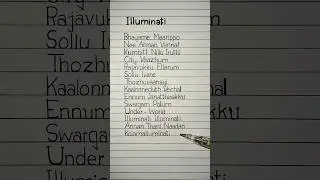 Illuminati
Bhayame Maarippo
Nee Annan Vannal
Kumbitt Nillu Irutte
City Vaazhum
Rajavukku Ellarum
Sollu Ivane
Thozhuvaanayi
Kaalonneduth Vechal
Ennum Jinathakku
Swargam Polum
Under-World
Illuminati Illuminati
Annan Thani Naadan